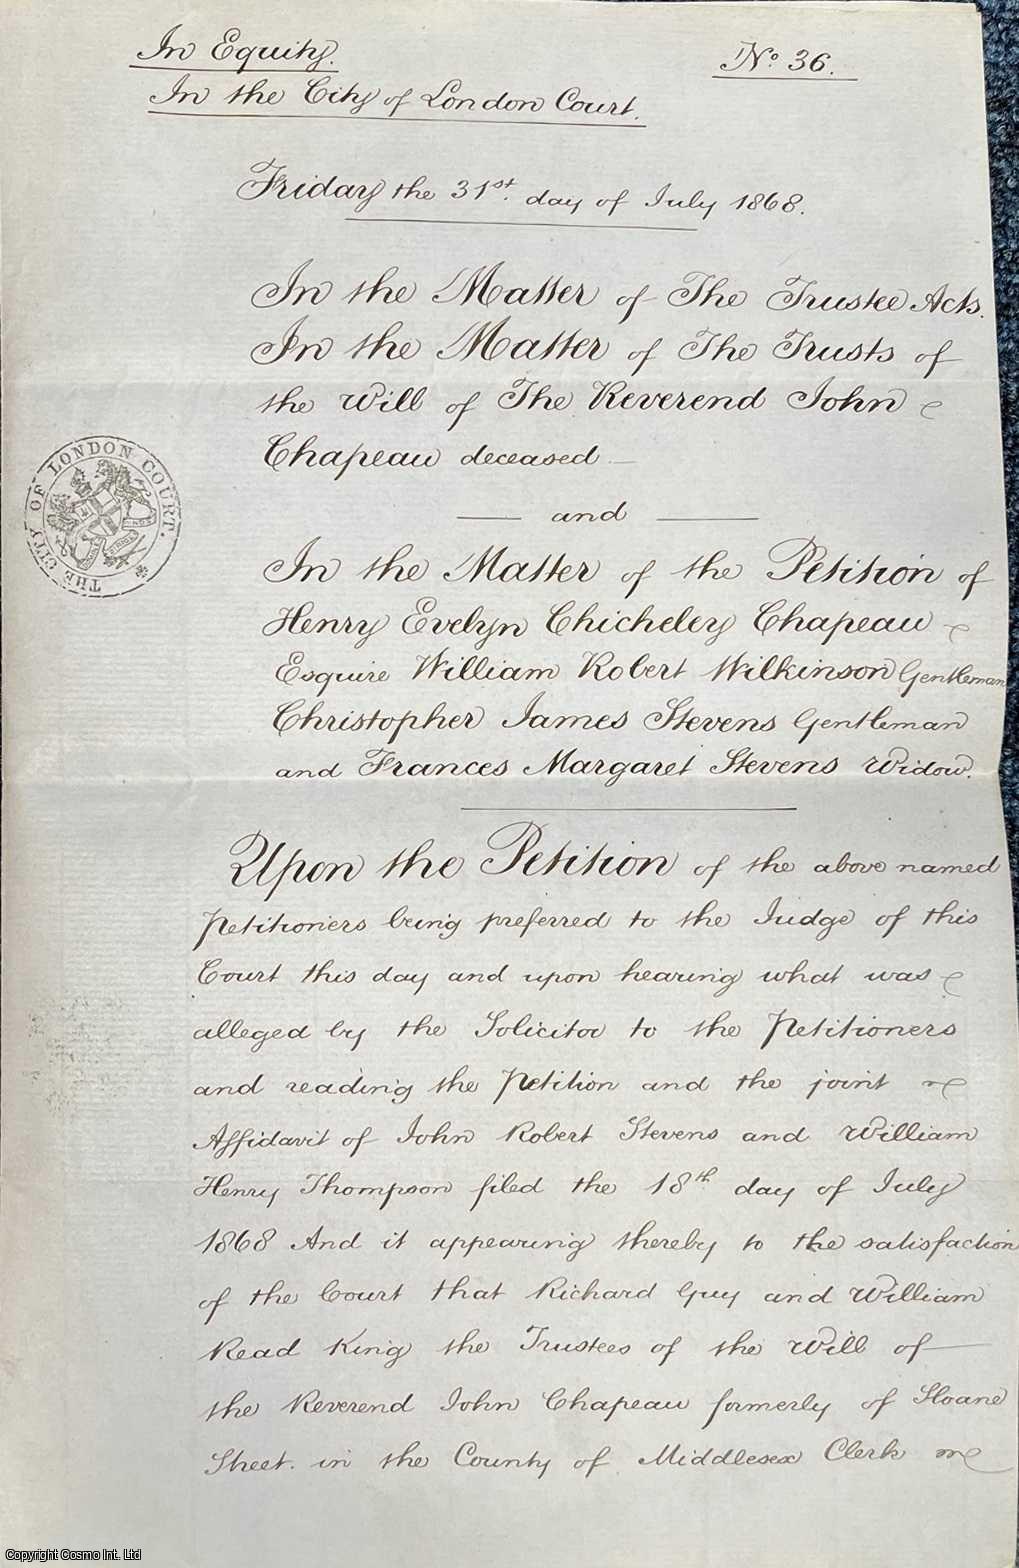 In Equity.
No. 36.
In the City of London Court.
Friday the 31st. day of July 1868.
In the Matter of The Trustee Acts.
In the Matter of The Trusts of
the Will of The Reverend John
Chapeau deceased
and
THE CITY OF LONDON COURT.
In the Matter of the Petition of
Henry Evelyn Chicheley Chapeau
Esquire William Robert Wilkinson Gentleman
Christopher James Stevens Gentleman
and Frances Margaret Stevens Widow.
Upon the Petition of the above named
Petitioners being preferred to the Judge of this
Court this day and upon hearing what was
alleged by the Solicitor to the Petitioners
and reading the Petition and the joint
Affidavit of John Robert Stevens and William
Henry Thompson filed the 18th day of July
1868 And it appearing thereby to the satisfaction
of the Court that Richard Guy and William
Read King the Trustees of the Will of
the Reverend John Chapeau formerly of Sloane
Street. in the County of Middlesex Clerk
Copyright Cosmo Int. Ltd